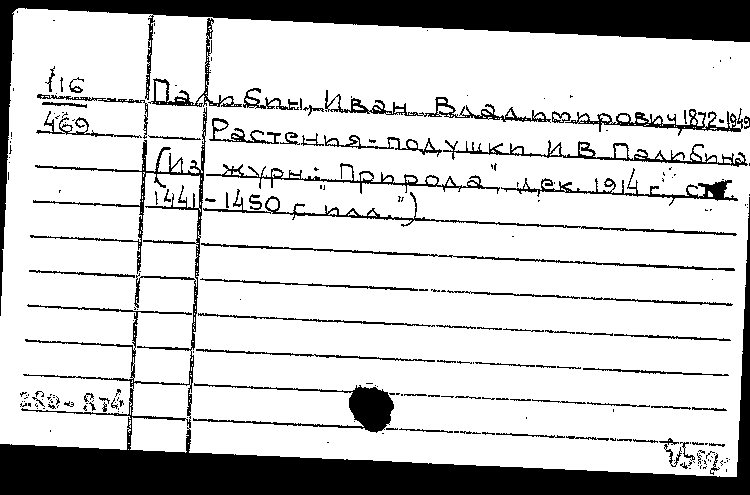 116 Палибин, Иван Владимирович, 1872-1949
469 Растения-подушки И.В Палибина
(Из журн. "Природа", дек. 1914 г., ст.
1441-1450 с илл.")
289-874